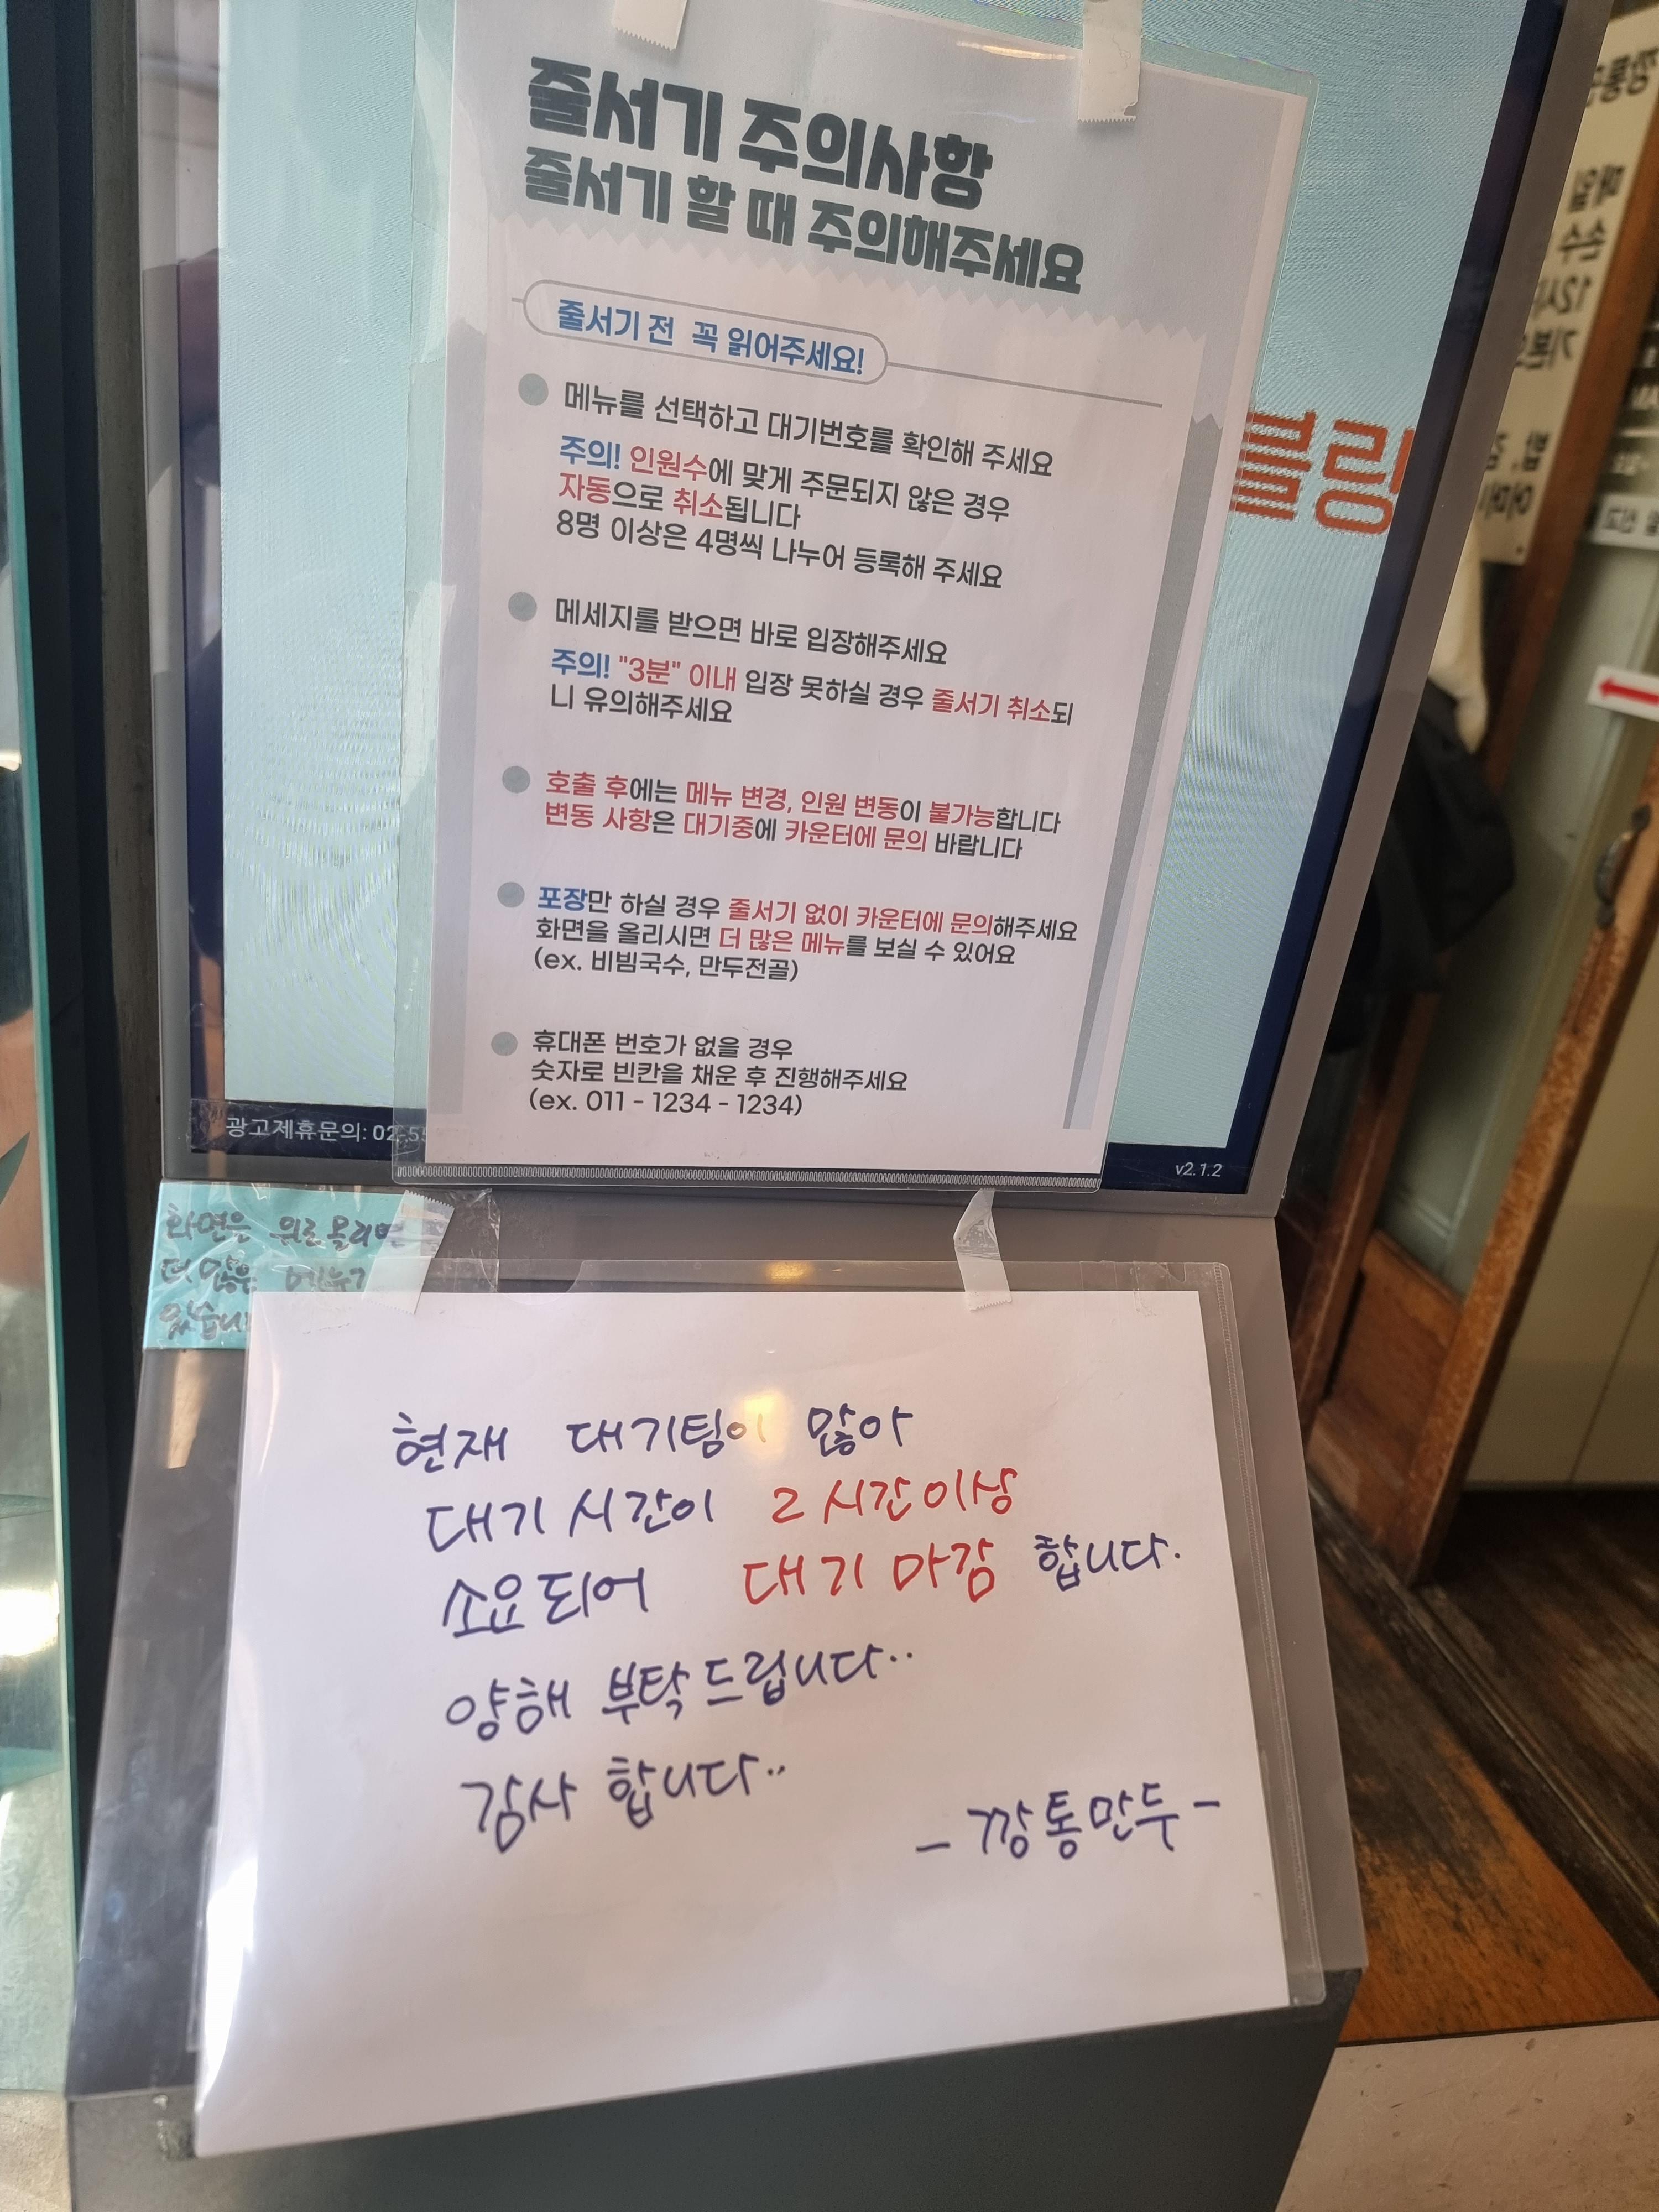 줄서기 주의사항
줄서기 할 때 주의해주세요
줄서기 전 꼭 읽어주세요!
메뉴를 선택하고 대기번호를 확인해 주세요
주의! 인원수에 맞게 주문되지 않은 경우
자동으로 취소됩니다
8명 이상은 4명씩 나누어 등록해 주세요
메세지를 받으면 바로 입장해주세요
주의! "3분" 이내 입장 못하실 경우 줄서기 취소되
니 유의해주세요
호출 후에는 메뉴 변경, 인원 변동이 불가능합니다
변동 사항은 대기중에 카운터에 문의 바랍니다
포장만 하실 경우 줄서기 없이 카운터에 문의해주세요
화면을 올리시면 더 많은 메뉴를 보실 수 있어요
(ex. 비빔국수, 만두전골)
휴대폰 번호가 없을 경우
숫자로 빈칸을 채운 후 진행해주세요
(ex. 011 - 1234 - 1234)
블링
광고제휴문의: 02-55
v2.1.2
화면은 위로 올리면
더 많은 메뉴가
있습니
현재 대기팀이 많아
대기 시간이 2시간이상
소요되어 대기 마감 합니다.
양해 부탁드립니다..
감사 합니다..
- 깡통만두 -